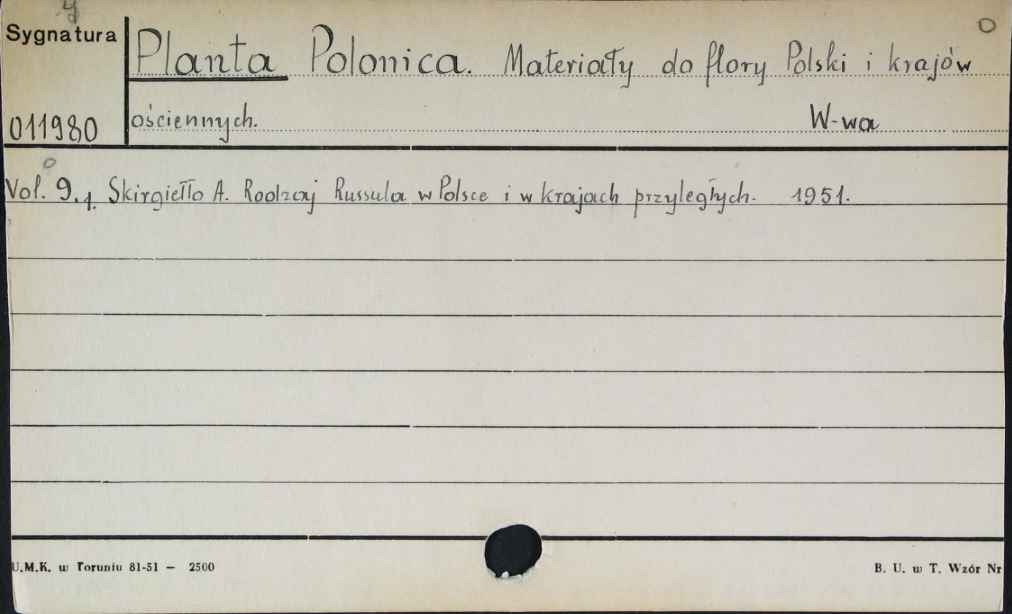 Sygnatura Planta Polonica. Materiały do flory Polski i krajów
011980 ościennych. W-wa
Vol. 9.1. Skirgiełło A. Rodzaj Russula w Polsce i w krajach przyległych. 1951.
U.M.K. w Toruniu 81-51 — 2500 B. U. w T. Wzór Nr